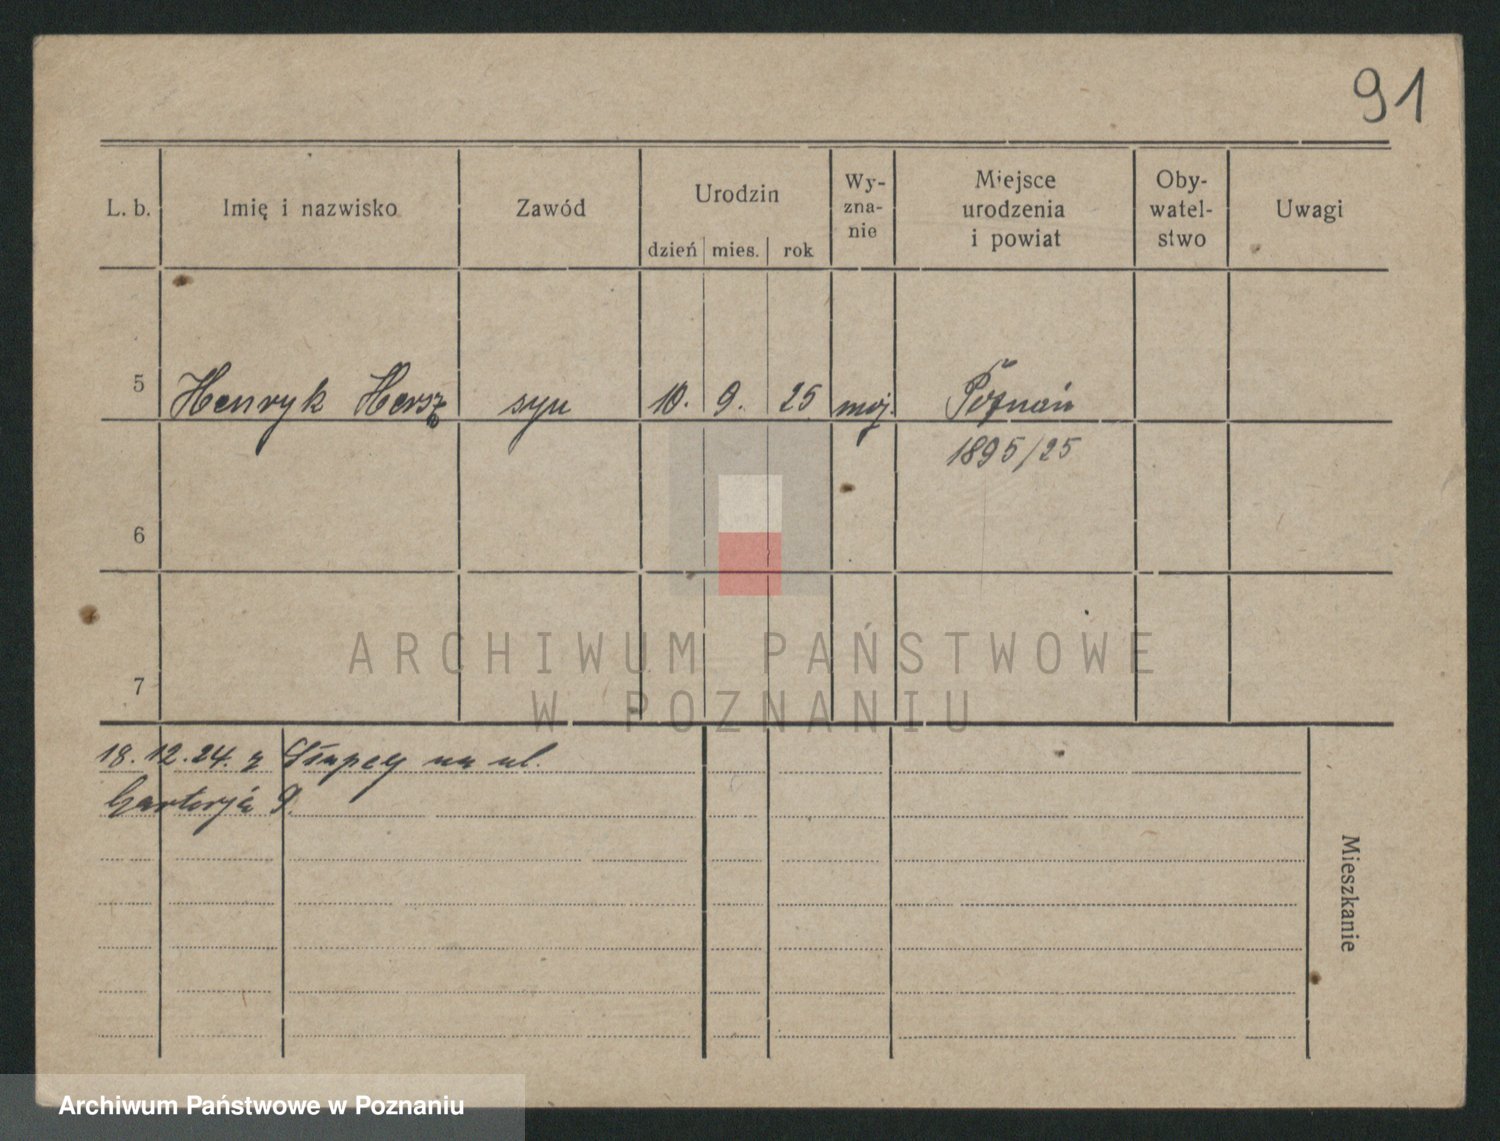 91
L. b. Imię i nazwisko Zawód Urodzin Wy-zna-nie Miejsce urodzenia i powiat Oby-watel-stwo Uwagi
dzień mies. rok
5 Henryk Hersz syn 10. 9. 25 mojż. Poznań
1895/25
6
7
ARCHIWUM PAŃSTWOWE
W POZNANIU
18.12.24. z Słupcy na ul.
9.
Mieszkanie
Archiwum Państwowe w Poznaniu